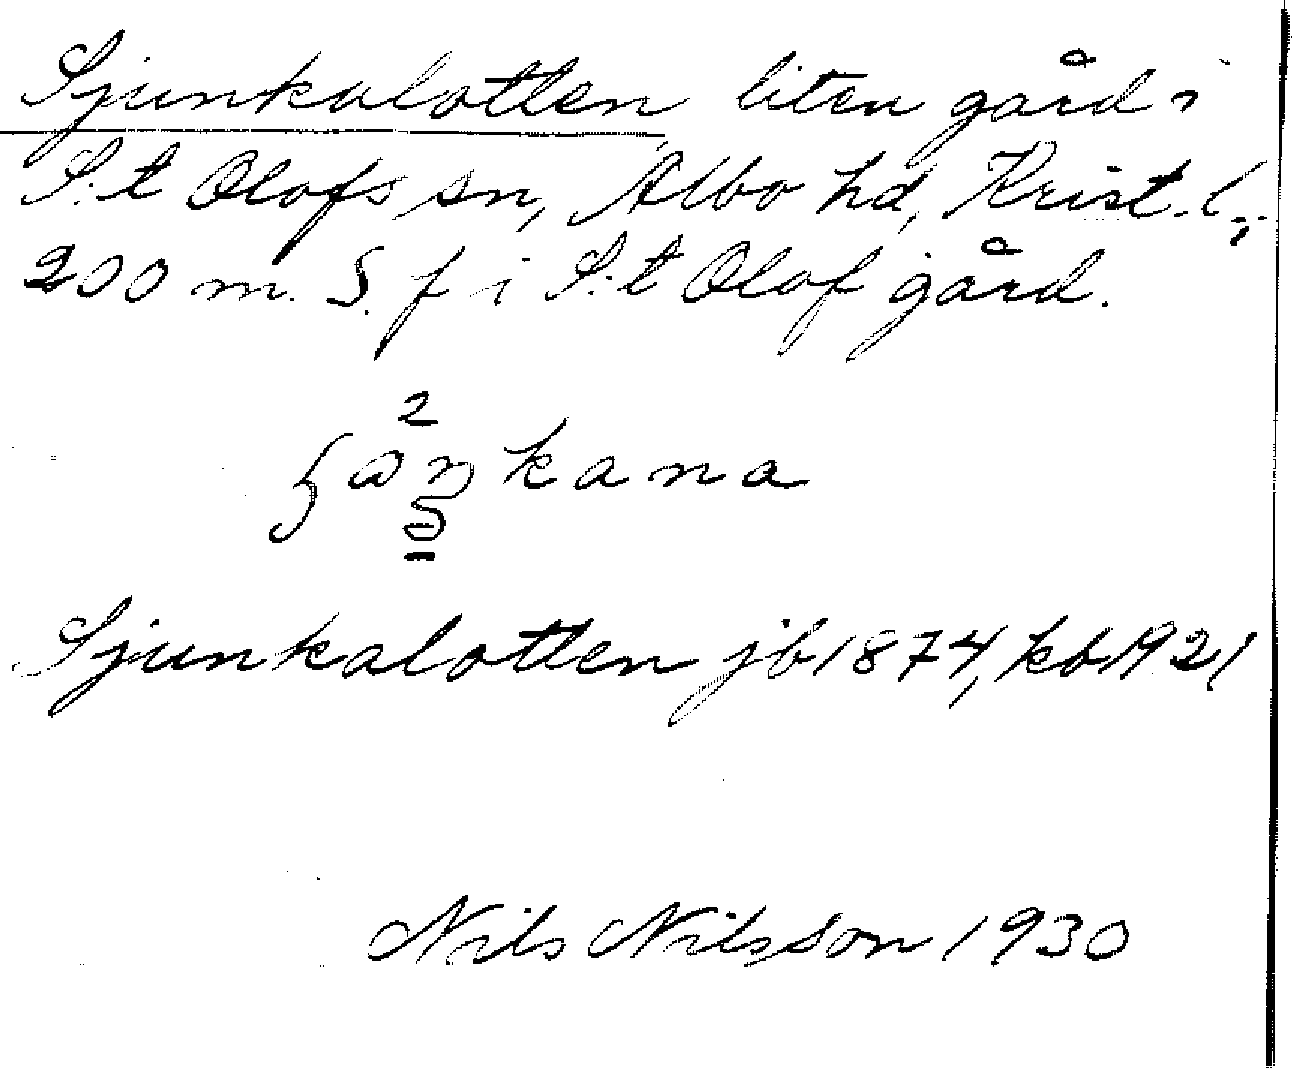 Sjunkalotten, liten gård i
S:t Olofs sn, Albo hd, Krist. l.;
200 m. S. f i S:t Olof gård.
2
kana
Sjunkalotten jb 1874, kb 1921
Nils Nilsson 1930